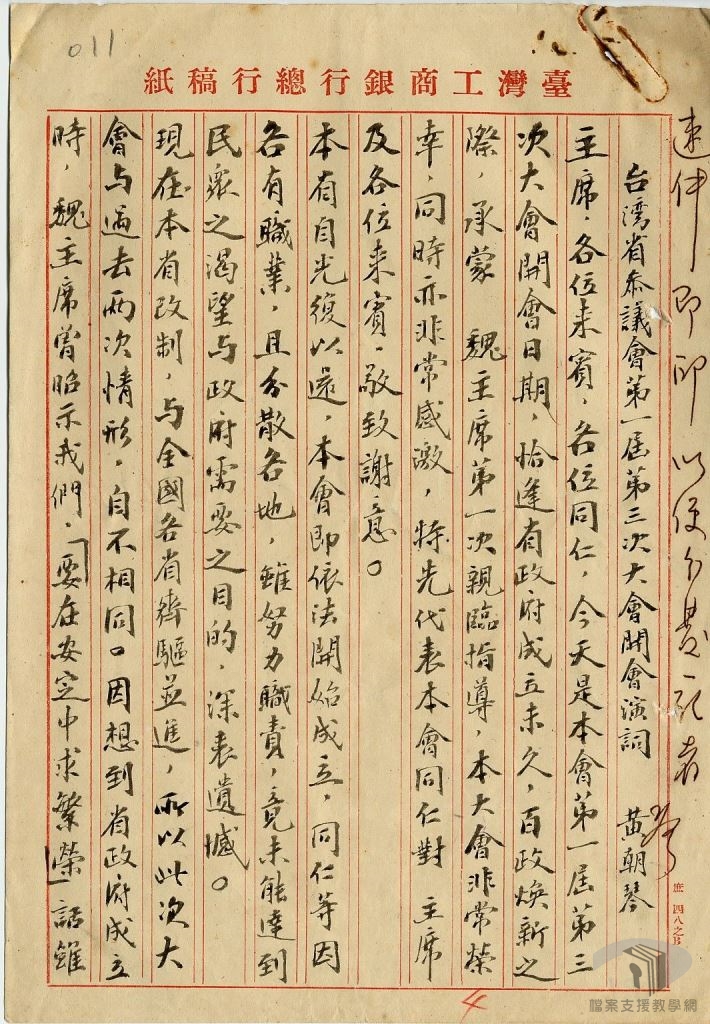 011
臺灣工商銀行總行稿紙
速件即印以便分發記者
台湾省参議會第一屆第三次大會開會演詞　黄朝琴
主席，各位来賓，各位同仁，今天是本會第一屆第三
次大會開會日期，恰逢省政府成立未久，百政煥新之
際，承蒙　魏主席第一次親臨指導，本大會非常榮
幸，同時亦非常感激，特先代表本會同仁對　主席
及各位来賓，敬致謝意。
本省自光復以還，本會即依法開始成立，同仁等因
各有職業，且分散各地，雖努力職責，竟未能達到
民衆之渴望与政府需要之目的，深表遺憾。
現在本省改制，与全國各省齊驅並進，所以此次大
會与過去兩次情形，自不相同。因想到省政府成立
時，魏主席曾昭示我們，「要在安定中求繁榮」話雖
庶 四八之B
4
檔案支援教學網